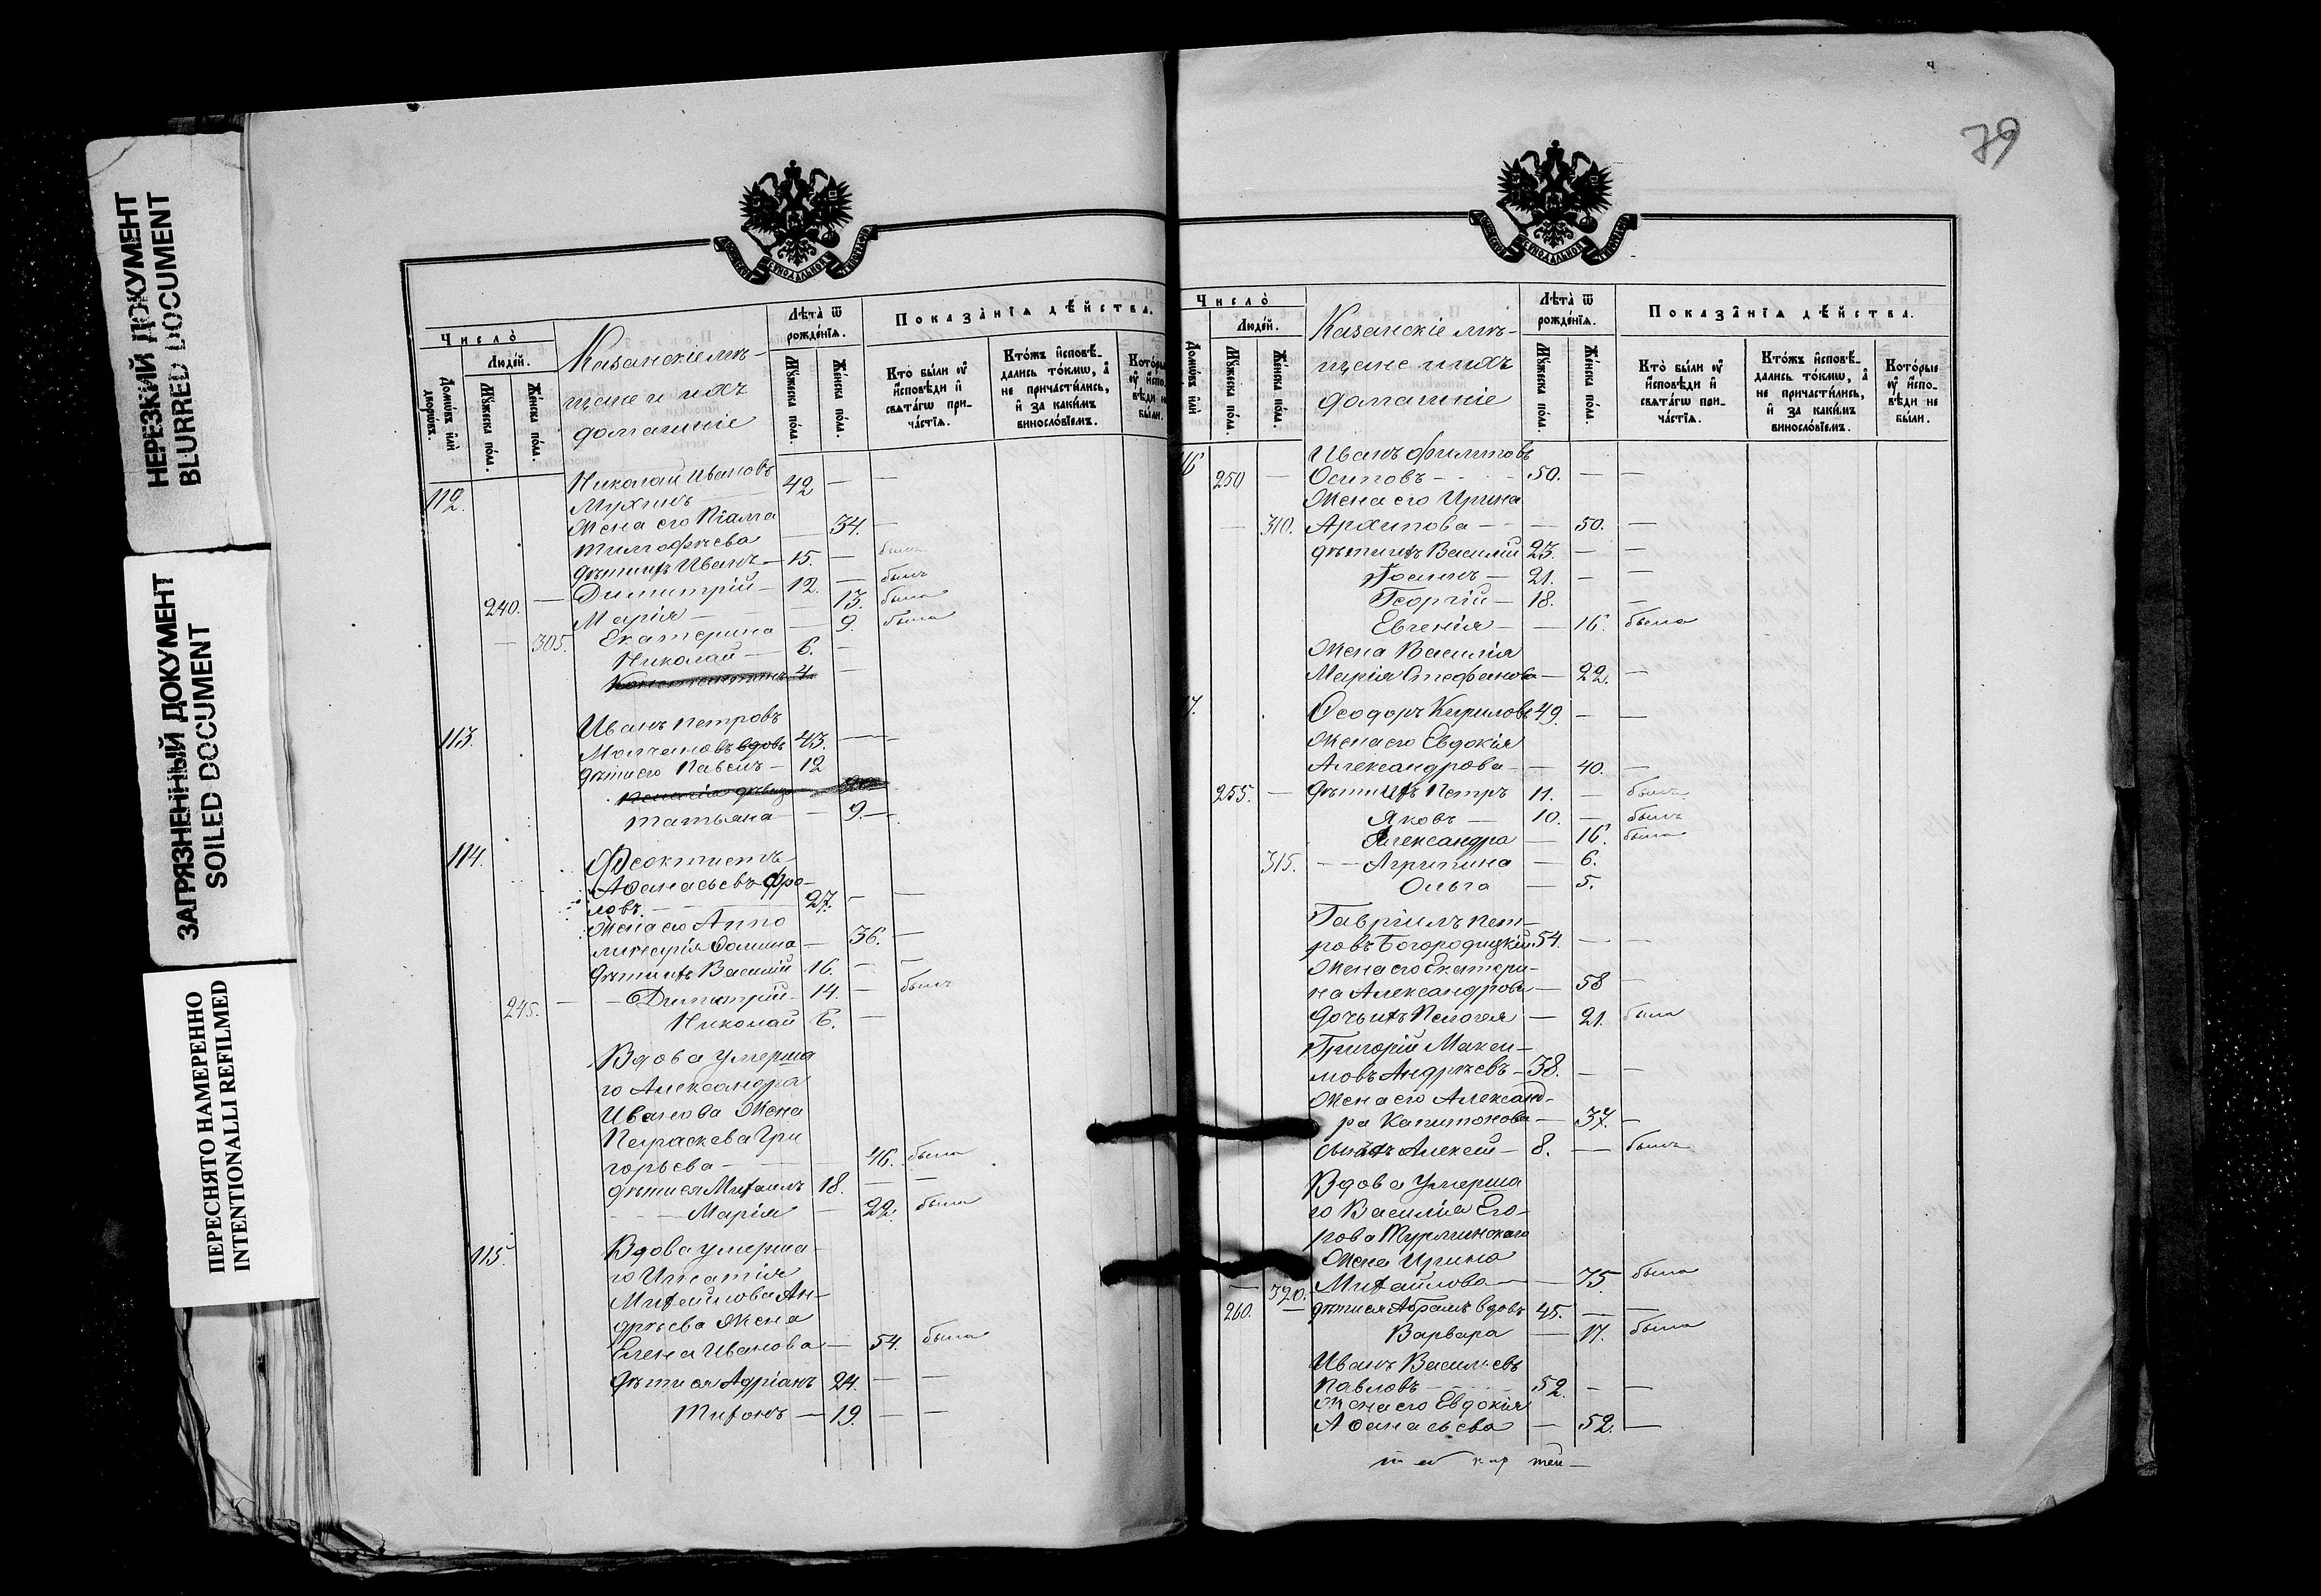 НЕРЕЗКИЙ ДОКУМЕНТ
BLURRED DOCUMENT
ЗАГРЯЗНЕННЫЙ ДОКУМЕНТ
SOILED DOCUMENT
ПЕРЕСНЯТО НАМЕРЕННО
INTENTIONALLI REFILMED
Число̀
Людей.
Домѡвъ или дворѡвъ.
Мꙋжеска пола.
Женска пола.
Казанскіе мѣ-
щане и ихъ
домашніе
Лѣта ѿ рожденїѧ.
Мꙋжеска пола.
Женска пола.
Показанїѧ дѣйства.
Кто были ᲂу҆ исповѣди и свѧтагѡ причастїѧ.
Ктожъ исповѣдались токмѡ, а не причастились, и за какимъ винословїемъ.
Которые ᲂу҆ исповѣди не были.
112. Николай Ивановъ
Мухинъ 42 — —
Жена его
Тимофѣева — 34. —
дѣти ихъ Иванъ — 15. — былъ
240. — Димитрій — 12. — былъ
Марія — — 13. была
— 305. Екатерина — 9. была
Николай — 6. —
Константинъ 4. —
113. Иванъ Петровъ
Молчановъ вдовъ 43. — —
дѣти его Павелъ — 12
девица
Татьяна — 9. —
114. Феоктистъ
Аѳанасьевъ Фро-
ловъ. 27. — —
Жена его Аппо
линарія Ѳомина — 36. —
дѣти ихъ Василій 16. — —
245. — Димитрій — 14. — былъ
Николай 6. —
Вдова умерша
го Александра
Иванова Жена
Параскева Гри
горьева — 46. была
дѣти ея Михаилъ 18. — —
Марія — 22. была
115. Вдова умерша-
го Игнатія
Михайлова Ан-
дреева Жена
Елена Иванова — 54. была
дѣти ея Адріанъ 24. — —
Тихонъ — 19. — —
79
Число̀
Людей.
Домѡвъ или
Мꙋжеска пола.
Женска пола.
Казанскіе мѣ-
щане и ихъ
домашніе
Лѣта ѿ рожденїѧ.
Мꙋжеска пола.
Женска пола.
Показанїѧ дѣйства.
Кто были ᲂу҆ исповѣди и свѧтагѡ причастїѧ.
Ктожъ исповѣдались токмѡ, а не причастились, и за какимъ винословїемъ.
Которые ᲂу҆ исповѣди не были.
16 Иванъ Филиповъ
250 — Осиповъ 50. — —
Жена его Ирина
— 310. Архипова — — 50. —
дѣти ихъ Василій 23. — —
Іоаннъ — 21. — —
Георгій — 18. —
Евгенія — — 16. была
Жена Василія
Марія Стефанова — 22. —
17. Ѳеодоръ Кириловъ 49. — —
Жена его Евдокія
Александрова — 40. —
255. — дѣти ихъ Петръ 11. — былъ
Яковъ — 10. — былъ
Александра — 16. была
315. Агрипина — 6.
Ольга — 5.
Гавріилъ Пет-
ровъ Богородицкій 54. — —
Жена его Екатери-
на Александрова — 58 —
дочь ихъ Пелагея — 21. была
Григорій Макси-
мовъ Андреевъ — 38. — —
Жена его Александ-
ра Капитонова — 37. —
сынъ ихъ Алексей — 8. — былъ
Вдова умерша
го Василія Его-
рова Турминскаго
Жена Ирина
— 320. Михайлова — — 75. была
260. — дѣти ея Абрамъ вдовъ 45. — —
Варвара — 17. была
Иванъ Васильевъ
Павловъ 52. — —
Жена его Евдокія
Аѳанасьева — 52. —